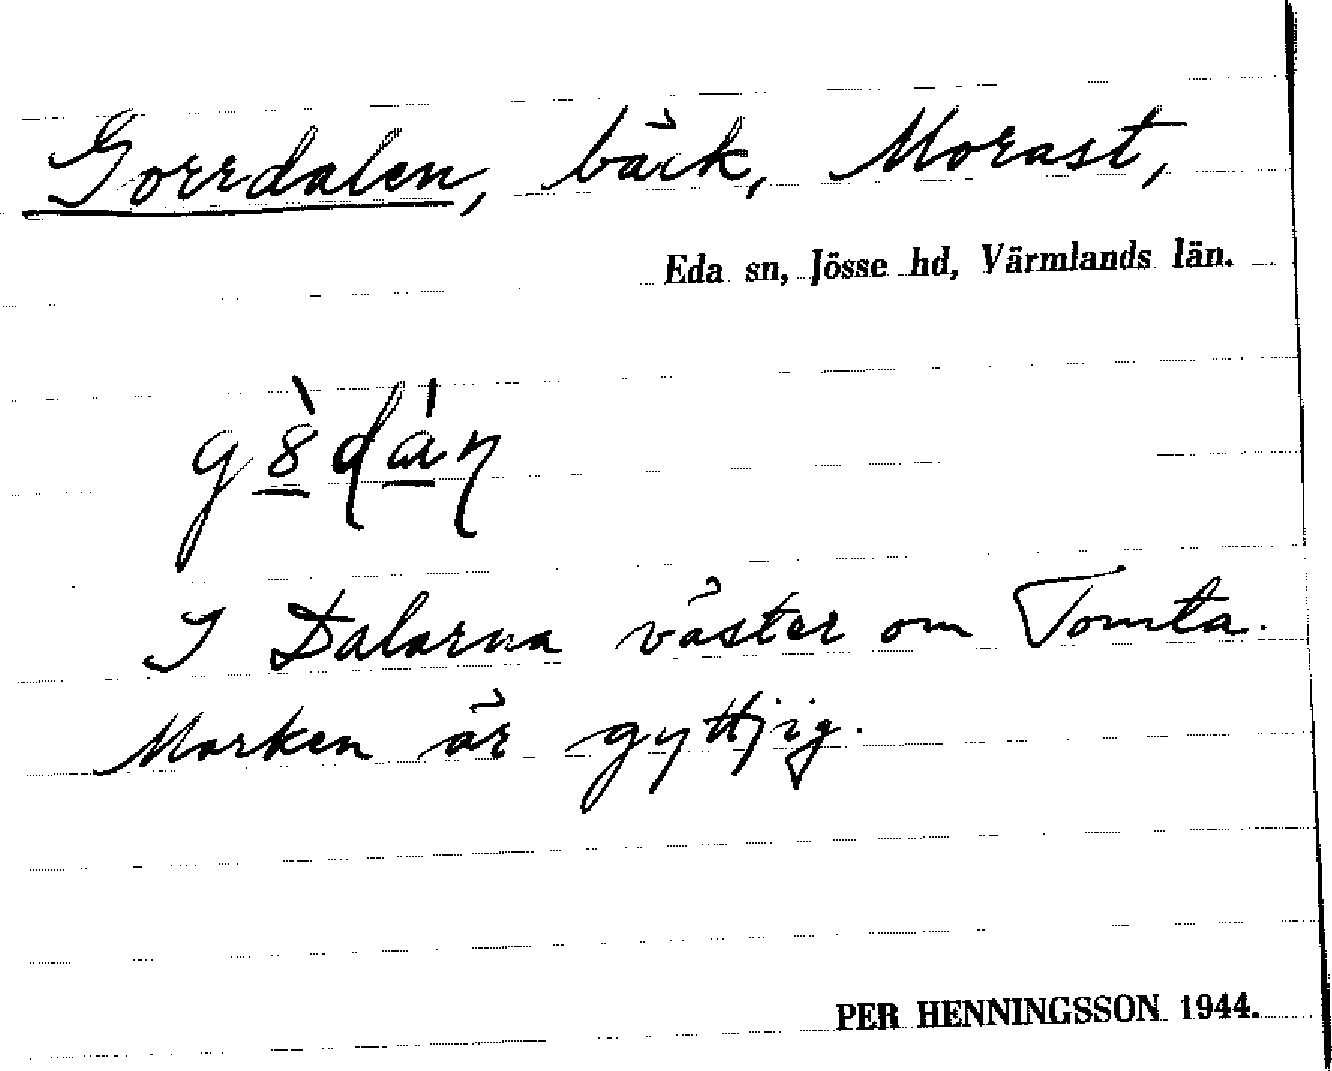 Gorrdalen, bäck, Morast,
Eda sn, Jösse hd, Värmlands län.
I Dalarna väster om Tomta.
Marken är gyttjig.
PER HENNINGSSON 1944.